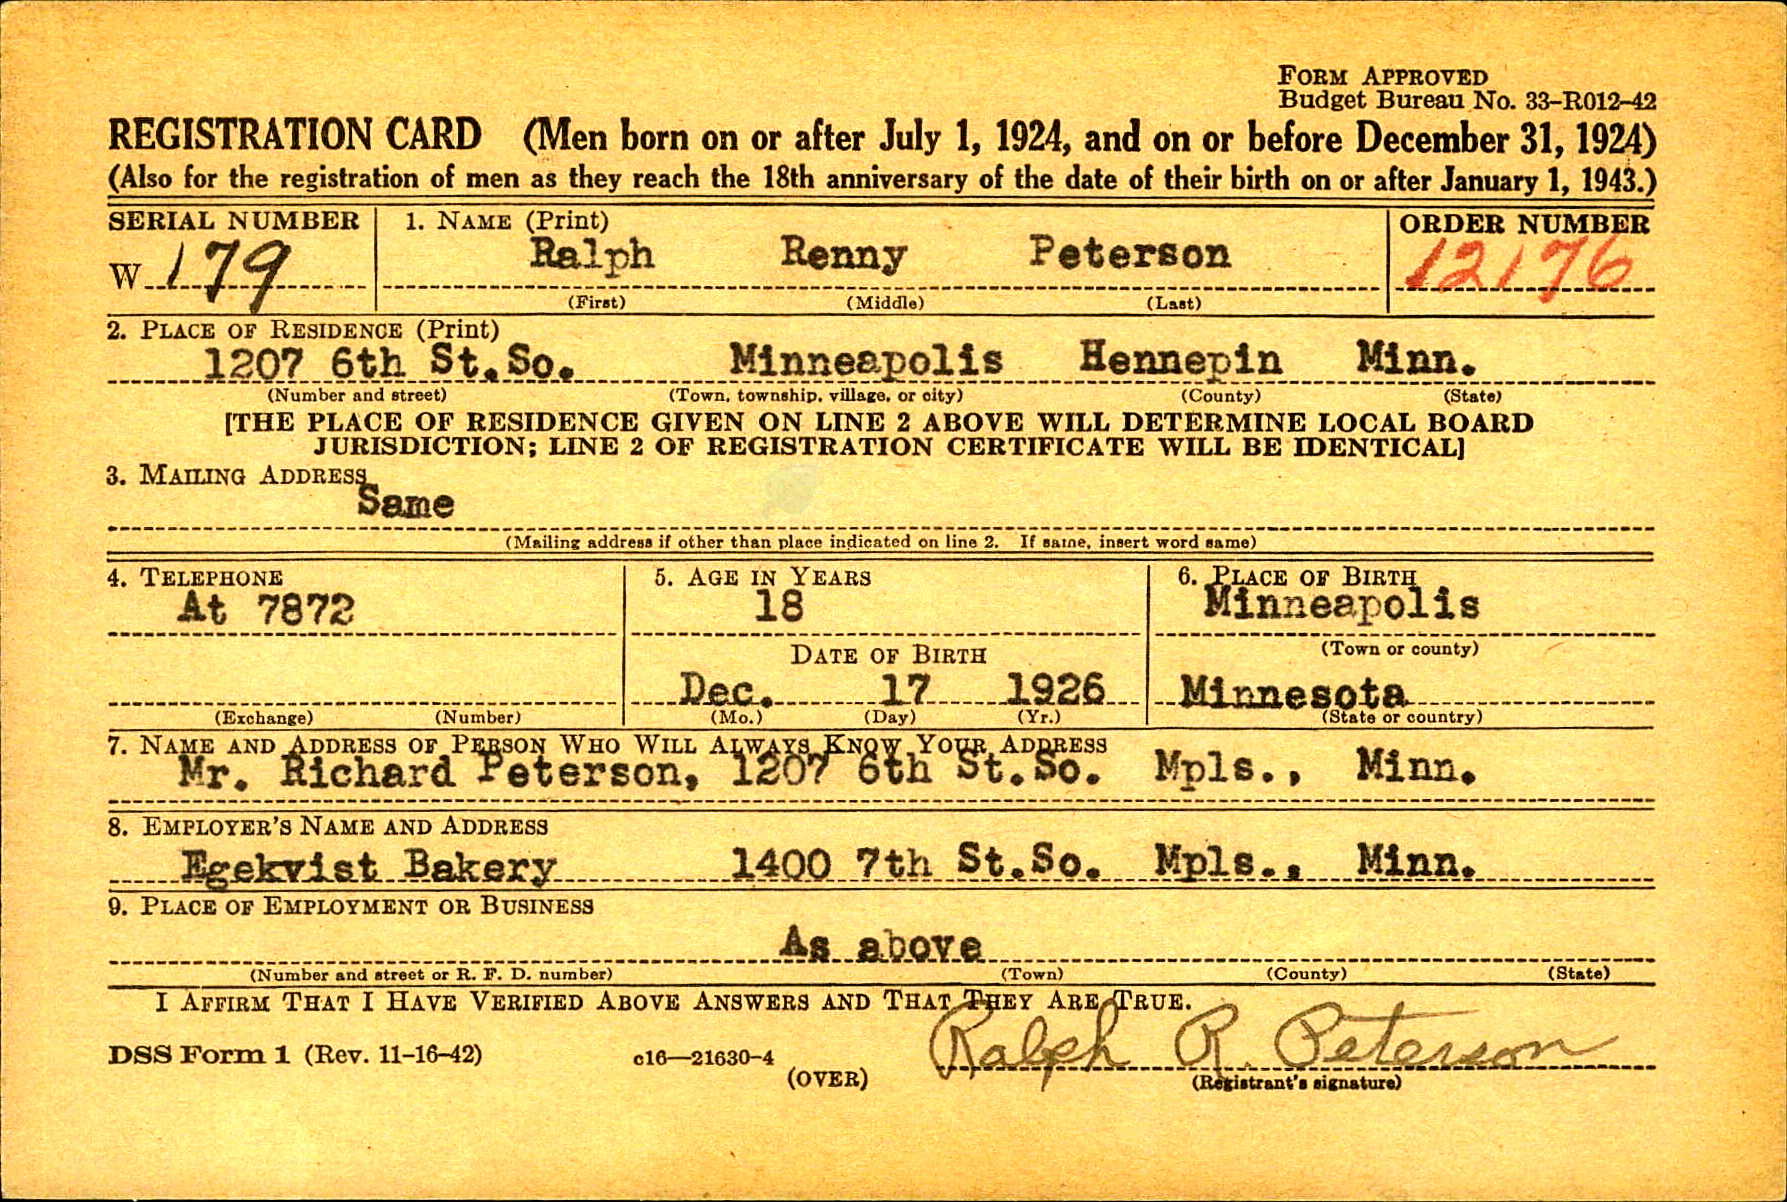 FORM APPROVED
Budget Bureau No. 33-R012-42
REGISTRATION CARD (Men born on or after July 1, 1924, and on or before December 31, 1924)
(Also for the registration of men as they reach the 18th anniversary of the date of their birth on or after January 1, 1943.)
SERIAL NUMBER 1. NAME (Print) ORDER NUMBER
W 179 Ralph Renny Peterson 12176
(First) (Middle) (Last)
2. PLACE OF RESIDENCE (Print)
1207 6th St.So. Minneapolis Hennepin Minn.
(Number and street) (Town, township, village, or city) (County) (State)
[THE PLACE OF RESIDENCE GIVEN ON LINE 2 ABOVE WILL DETERMINE LOCAL BOARD
JURISDICTION; LINE 2 OF REGISTRATION CERTIFICATE WILL BE IDENTICAL]
3. MAILING ADDRESS
Same
(Mailing address if other than place indicated on line 2. If same, insert word same)
4. TELEPHONE 5. AGE IN YEARS 6. PLACE OF BIRTH
At 7872 18 Minneapolis
DATE OF BIRTH (Town or county)
Dec. 17 1926 Minnesota
(Exchange) (Number) (Mo.) (Day) (Yr.) (State or country)
7. NAME AND ADDRESS OF PERSON WHO WILL ALWAYS KNOW YOUR ADDRESS
Mr. Richard Peterson, 1207 6th St.So. Mpls., Minn.
8. EMPLOYER'S NAME AND ADDRESS
Egekvist Bakery 1400 7th St.So. Mpls., Minn.
9. PLACE OF EMPLOYMENT OR BUSINESS
As above
(Number and street or R. F. D. number) (Town) (County) (State)
I AFFIRM THAT I HAVE VERIFIED ABOVE ANSWERS AND THAT THEY ARE TRUE.
Ralph R. Peterson
DSS Form 1 (Rev. 11-16-42) c16—21630-4 (OVER) (Registrant's signature)